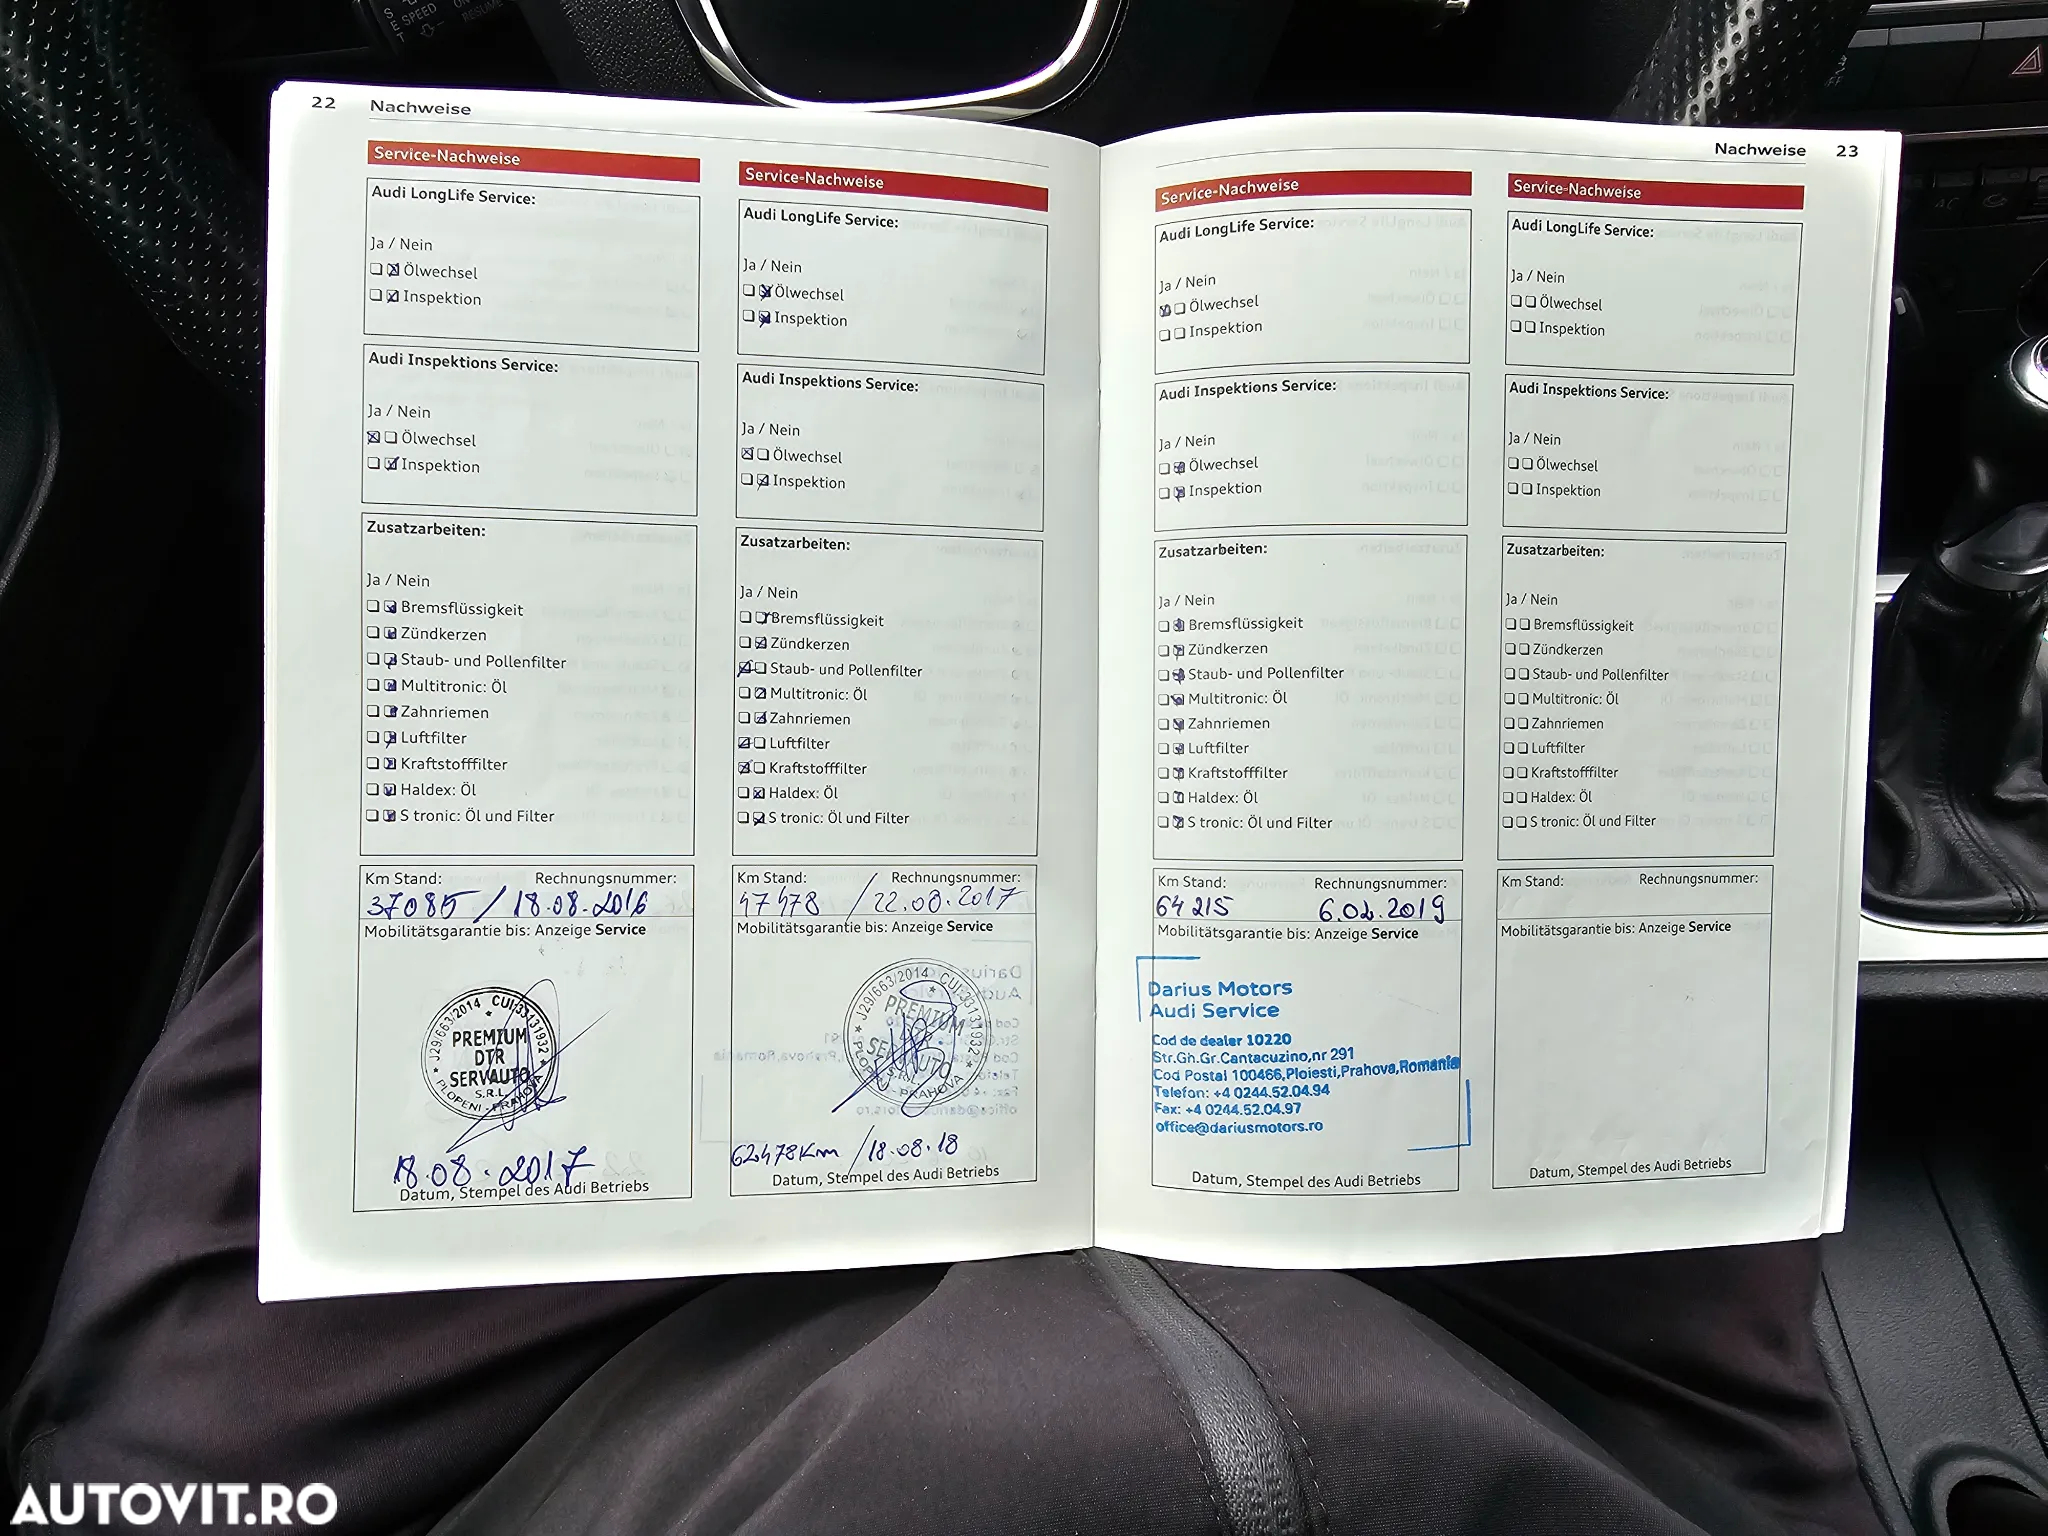 SPEED
RESUME
22 Nachweise
Service-Nachweise
Audi LongLife Service:
Ja / Nein
Ölwechsel
Inspektion
Audi Inspektions Service:
Ja / Nein
Ölwechsel
Inspektion
Zusatzarbeiten:
Ja / Nein
Bremsflüssigkeit
Zündkerzen
Staub- und Pollenfilter
Multitronic: Öl
Zahnriemen
Luftfilter
Kraftstofffilter
Haldex: Öl
S tronic: Öl und Filter
Km Stand: Rechnungsnummer:
37085 / 18.08.2016
Mobilitätsgarantie bis: Anzeige Service
J29/663/2014 CUI:33131932
PREMIUM
DTR
SERVAUTO
S.R.L.
PLOPENI - PRAHOVA
18.08.2017
Datum, Stempel des Audi Betriebs
Service-Nachweise
Audi LongLife Service:
Ja / Nein
Ölwechsel
Inspektion
Audi Inspektions Service:
Ja / Nein
Ölwechsel
Inspektion
Zusatzarbeiten:
Ja / Nein
Bremsflüssigkeit
Zündkerzen
Staub- und Pollenfilter
Multitronic: Öl
Zahnriemen
Luftfilter
Kraftstofffilter
Haldex: Öl
S tronic: Öl und Filter
Km Stand: Rechnungsnummer:
47478 / 22.08.2017
Mobilitätsgarantie bis: Anzeige Service
J29/663/2014 CUI:33131932
PREMIUM
DTR
SERVAUTO
S.R.L.
PLOPENI - PRAHOVA
62478 Km / 18.08.18
Datum, Stempel des Audi Betriebs
Nachweise 23
Service-Nachweise
Audi LongLife Service:
Ja / Nein
Ölwechsel
Inspektion
Audi Inspektions Service:
Ja / Nein
Ölwechsel
Inspektion
Zusatzarbeiten:
Ja / Nein
Bremsflüssigkeit
Zündkerzen
Staub- und Pollenfilter
Multitronic: Öl
Zahnriemen
Luftfilter
Kraftstofffilter
Haldex: Öl
S tronic: Öl und Filter
Km Stand: Rechnungsnummer:
64215 6.02.2019
Mobilitätsgarantie bis: Anzeige Service
Darius Motors
Audi Service
Cod de dealer 10220
Str.Gh.Gr.Cantacuzino,nr 291
Cod Postal 100466,Ploiesti,Prahova,Romania
Telefon: +4 0244.52.04.94
Fax: +4 0244.52.04.97
office@dariusmotors.ro
Datum, Stempel des Audi Betriebs
Service-Nachweise
Audi LongLife Service:
Ja / Nein
Ölwechsel
Inspektion
Audi Inspektions Service:
Ja / Nein
Ölwechsel
Inspektion
Zusatzarbeiten:
Ja / Nein
Bremsflüssigkeit
Zündkerzen
Staub- und Pollenfilter
Multitronic: Öl
Zahnriemen
Luftfilter
Kraftstofffilter
Haldex: Öl
S tronic: Öl und Filter
Km Stand: Rechnungsnummer:
Mobilitätsgarantie bis: Anzeige Service
Datum, Stempel des Audi Betriebs
AUTOVIT.RO